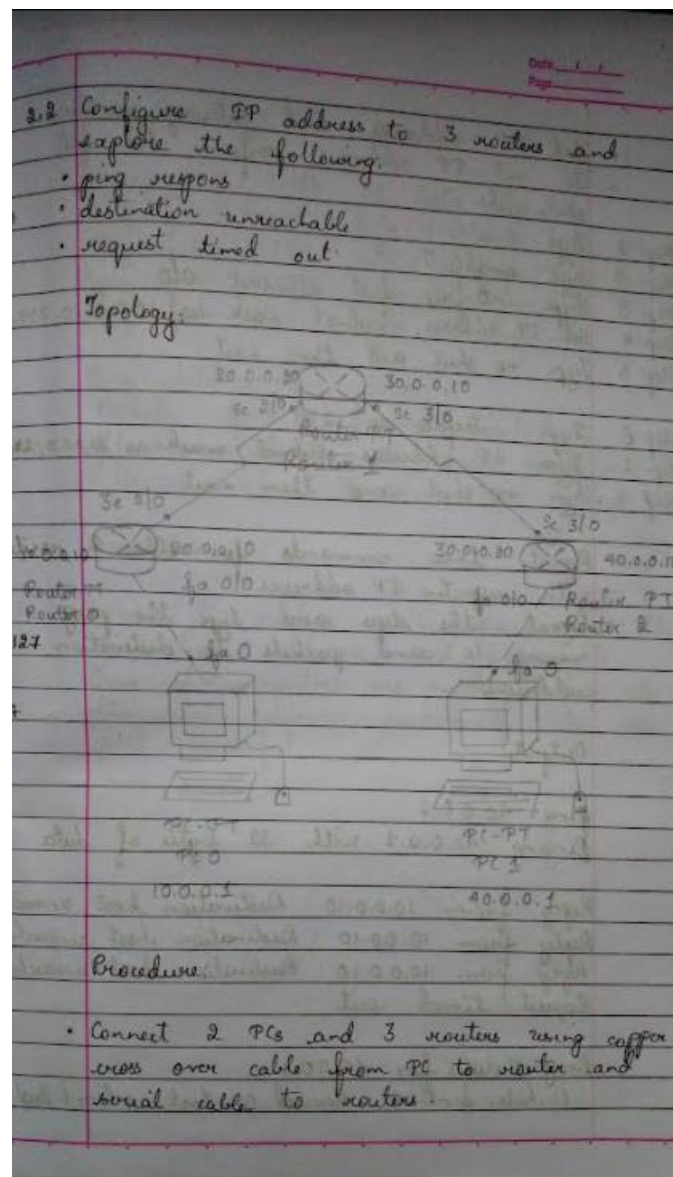 Date / /
Page
2.2 Configure IP address to 3 routers and
explore the following.
• ping respons
• destination unreachable
• request timed out.
Topology:
20.0.0.20 30.0.0.10
Se 2/0 Se 3/0
Router PT
Router 1
Se 2/0
Se 3/0
30.0.0.20 40.0.0.
fa 0/0 fa 0/0 Router PT
Router 0 Router 2
127
fa 0 fa 0
PC-PT PC-PT
PC 0 PC 1
10.0.0.1 40.0.0.1
Procedure:
• Connect 2 PCs and 3 routers using copper
cross over cable from PC to router and
serial cable to routers.